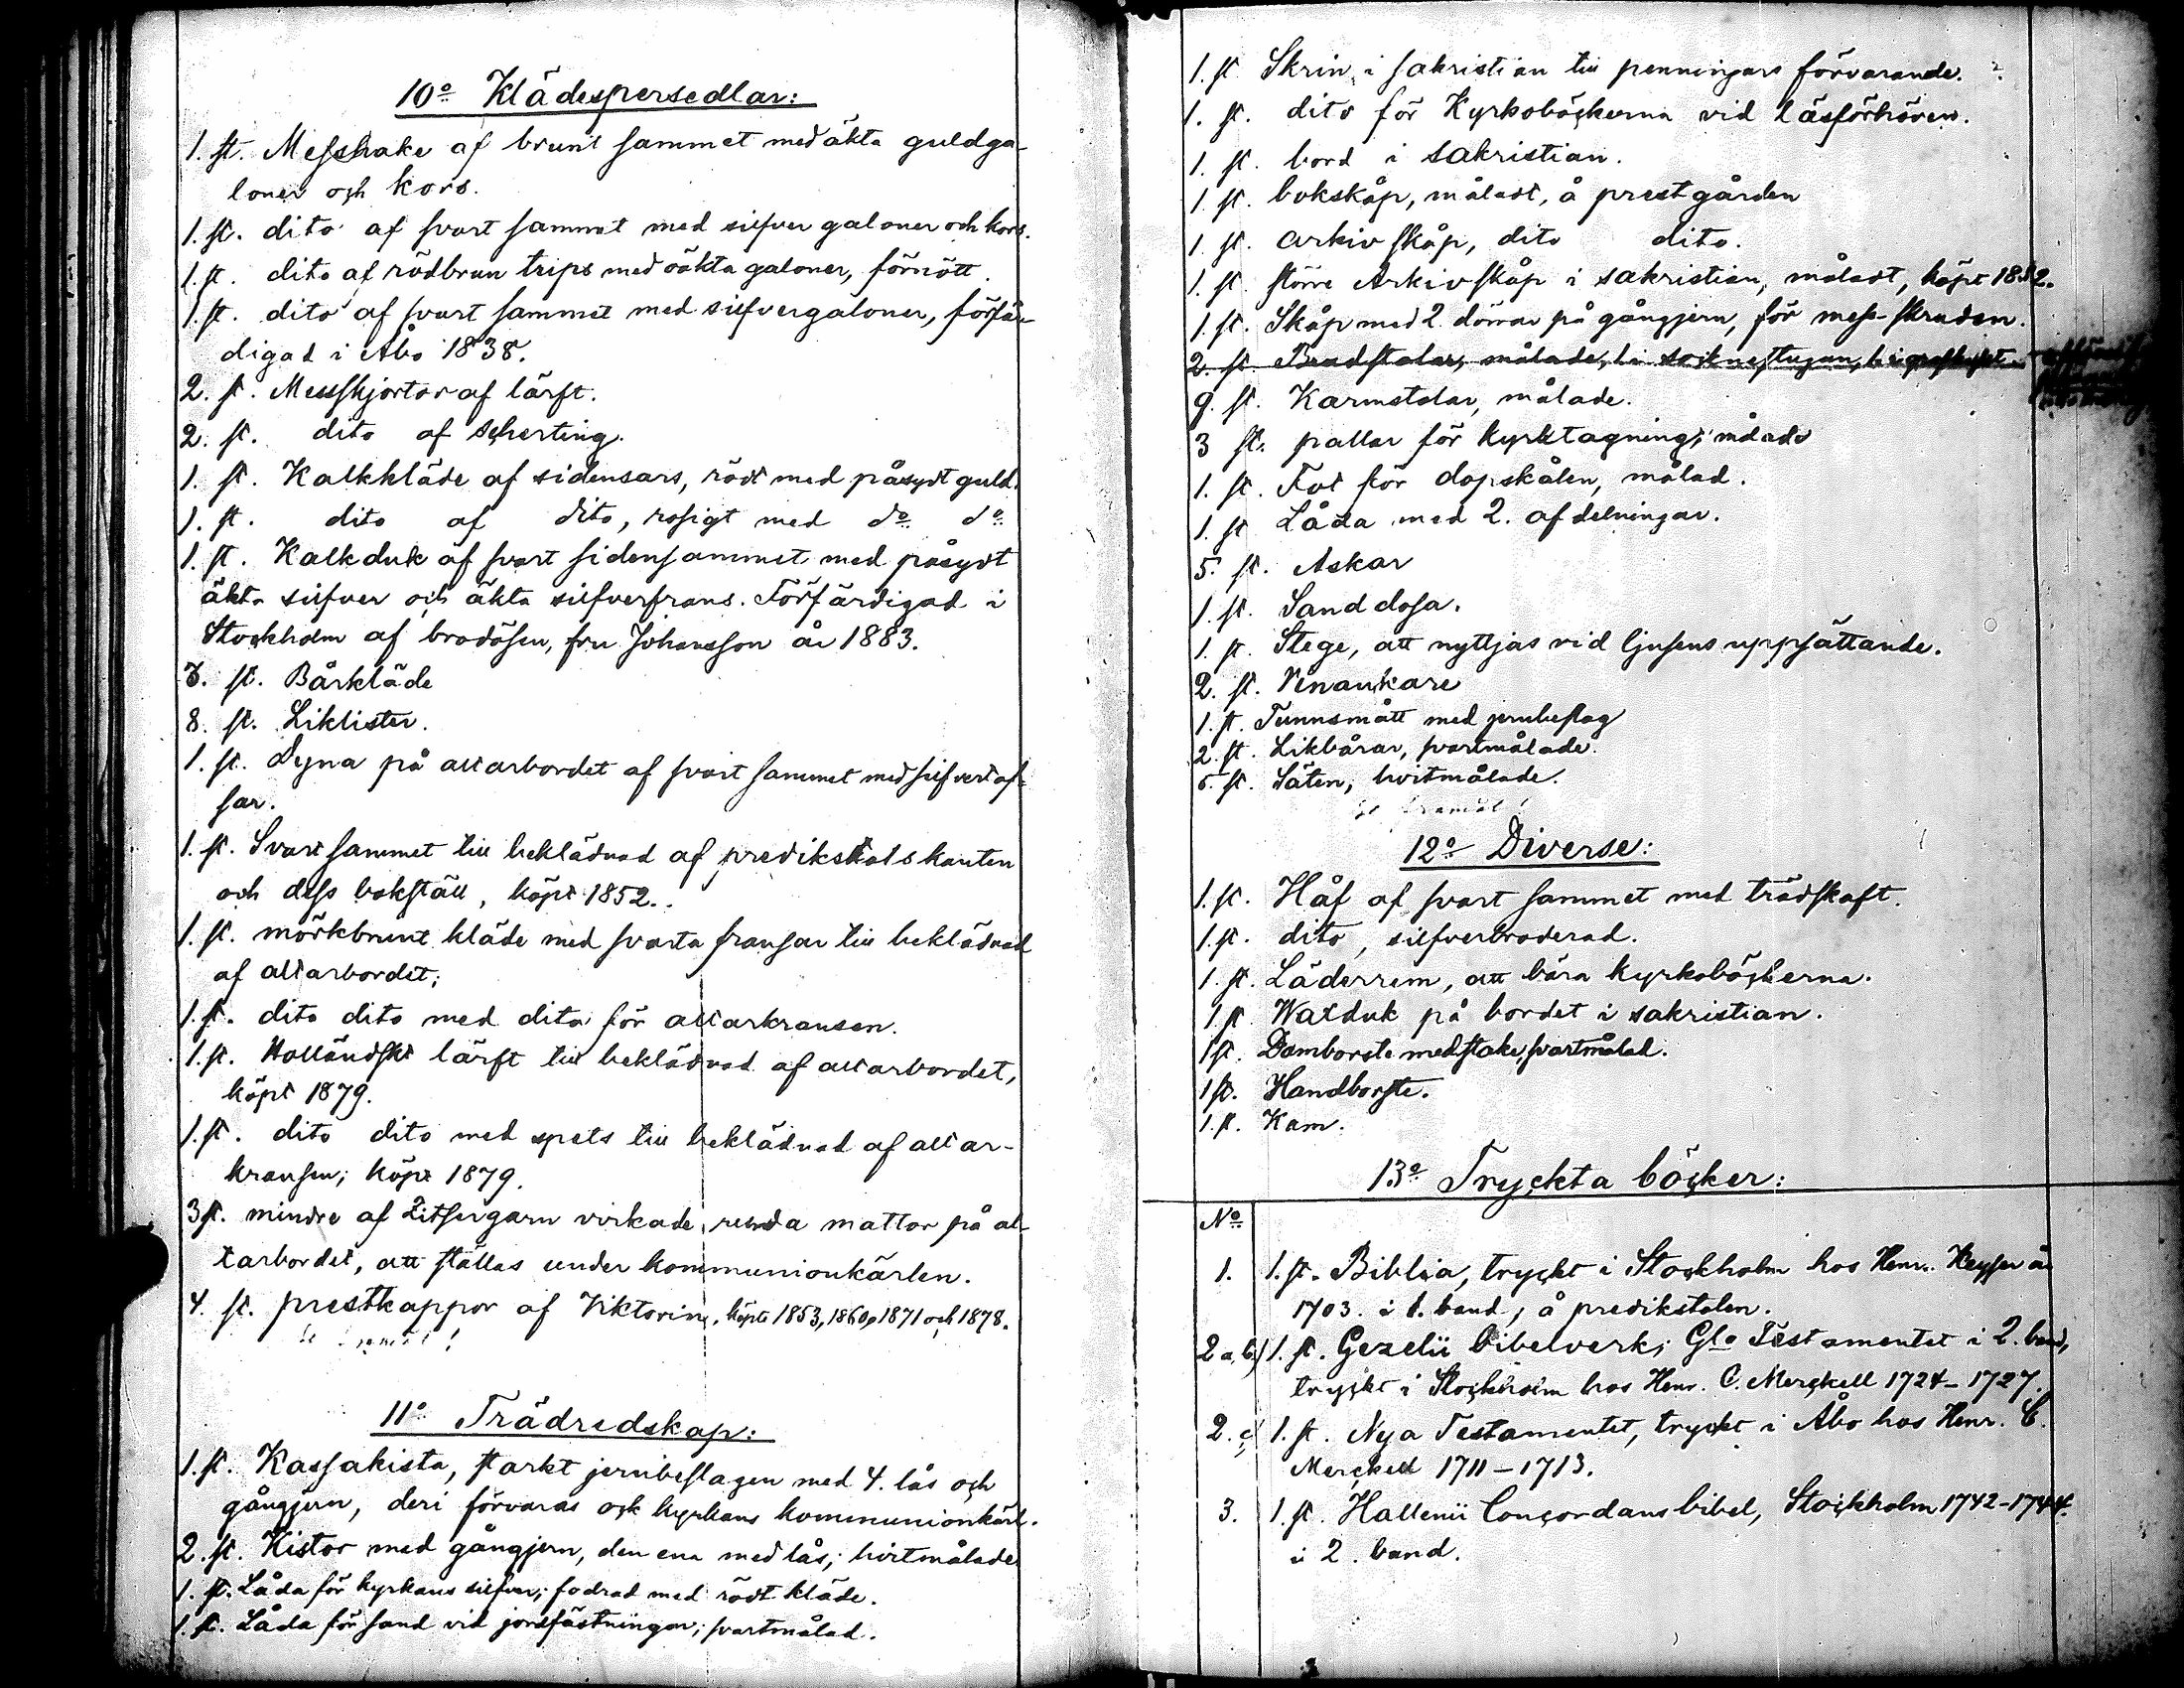 10o Klädespersedlar:
1. st. Messhake af brunt sammet med äkta guldga-
loner och kors.
1. st. dito af svart sammet med silfver galoner och kors.
1. st. dito af rödbrun trips med oäkta galoner, förnött.
1. st. dito af svart sammet med silfvergaloner, förfär-
digad i Åbo 1838.
2. st. Messskjortor af lärft.
2. st. dito af scherting.
1. st. Kalkkläde af sidensars, rödt med påsydt guld.
1. st. dito af dito, rosigt med do do
1. st. Kalkduk af svart sidensammet med påsydt
äkta silfver och äkta silfverfrans. Förfärdigad i
Stockholm af brodösen, fru Johansson år 1883.
3. st. Bårkläde
8. st. Liklister.
1. st. Dyna på altarbordet af svart sammet med silfvertof-
sar.
1. st. Svart sammet till beklädnad af predikstolskanten
och dess bokställ, köpt 1852.
1. st. mörkbrunt kläde med svarta fransar till beklädnad
af altarbordet;
1. st. dito dito med dito för altarkransen.
1. st. Holländskt lärft till beklädnad af altarbordet,
köpt 1879.
1. st. dito dito med spets till beklädnad af altar-
kransen; köpt 1879.
3 st. mindre af Zitsergarn virkade, runda mattor på al-
tarbordet, att ställas under kommunionkärlen.
4. st. prestkappor af Viktorin, köpta 1853, 1860, 1871 och 1878.
Se framåt!
11o Trädredskap:
1. st. Kassakista, starkt jernbeslagen med 4. lås och
gångjern, deri förvaras ock kyrkans kommunionkärl.
2. st. Kistor med gångjern, den ena med lås; hvitmålade
1. st. Låda för kyrkans silfver; fodrad med rödt kläde.
1. st. Låda för sand vid jordfästningar; svartmålad.
1. st. Skrin i sakristian till penningars förvarande.
1. st. dito för Kyrkoböckerna vid läsförhören.
1. st. bord i sakristian.
1. st. bokskåp, måladt, å prestgården
1. st. arkivskåp, dito dito.
1. st. större Arkivskåp i sakristian, måladt, köpt 1882.
1. st. Skåp med 2. dörrar på gångjern, för mess-skruden.
2. st. Bradstolar, målade,
9. st. Karmstolar, målade.
3 st. pallar för kyrktagning; målade
1. st. Fot för dopskålen, målad.
1. st Låda med 2. afdelningar.
5. st. Askar
1. st. Sanddosa.
1. st. Stege, att nyttjas vid ljusens uppsättande.
2. st. Vinankare
1. st. Tunnsmått med jernbeslag
2. st. Likbårar, svartmålade.
5. st. Säten, hvitmålade.
Se framåt!
12o Diverse:
1. st. Håf af svart sammet med trädskaft.
1. st. dito, silfverbroderad.
1. st. Läderrem, att bära kyrkoböckerna.
1. st. Waxduk på bordet i sakristian.
1 st. Damborste med stake, svartmålad.
1 st. Handborste.
1. st. Kam.
13o Tryckta böcker:
No
1. 1. st. Biblia, tryckt i Stockholm hos Henr. Keyser år
1703. i 1. band, å predikstolen.
2 a, b) 1. st. Gezelii bibelverk; Gla Testamentet i 2. band,
tryckt i Stockholm hos Henr. C. Merckell 1724-1727.
2. c) 1. st. Nya Testamentet, tryckt i Åbo hos Henr. C.
Merckell 1711-1713.
3. 1. st. Hallenii Concordans bibel, Stockholm 1742-1744.
i 2. band.